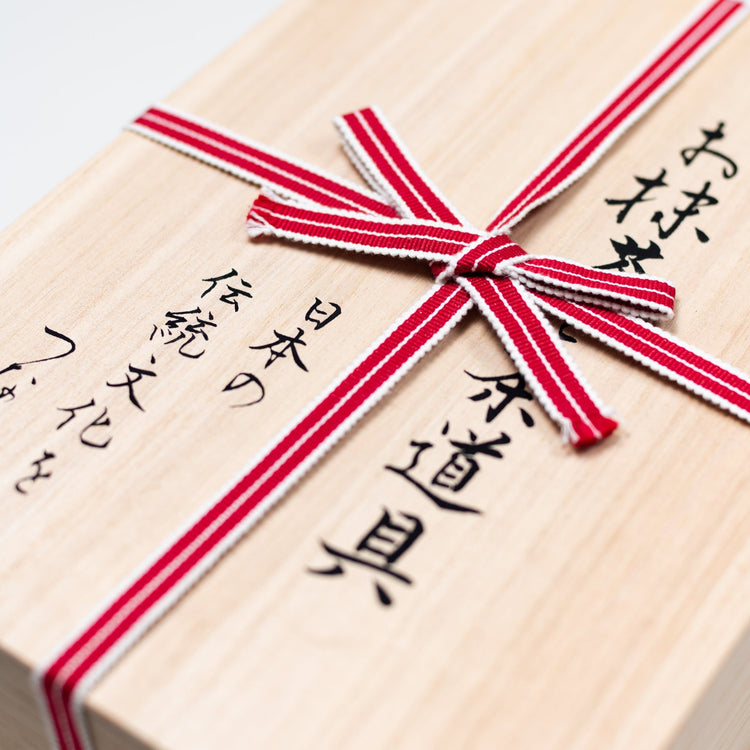 お抹茶と茶道具
日本の
伝統文化を
つな